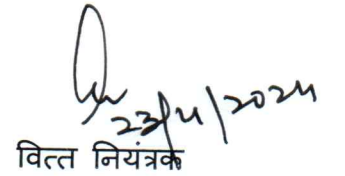 23/4/2024
वित्त नियंत्रक